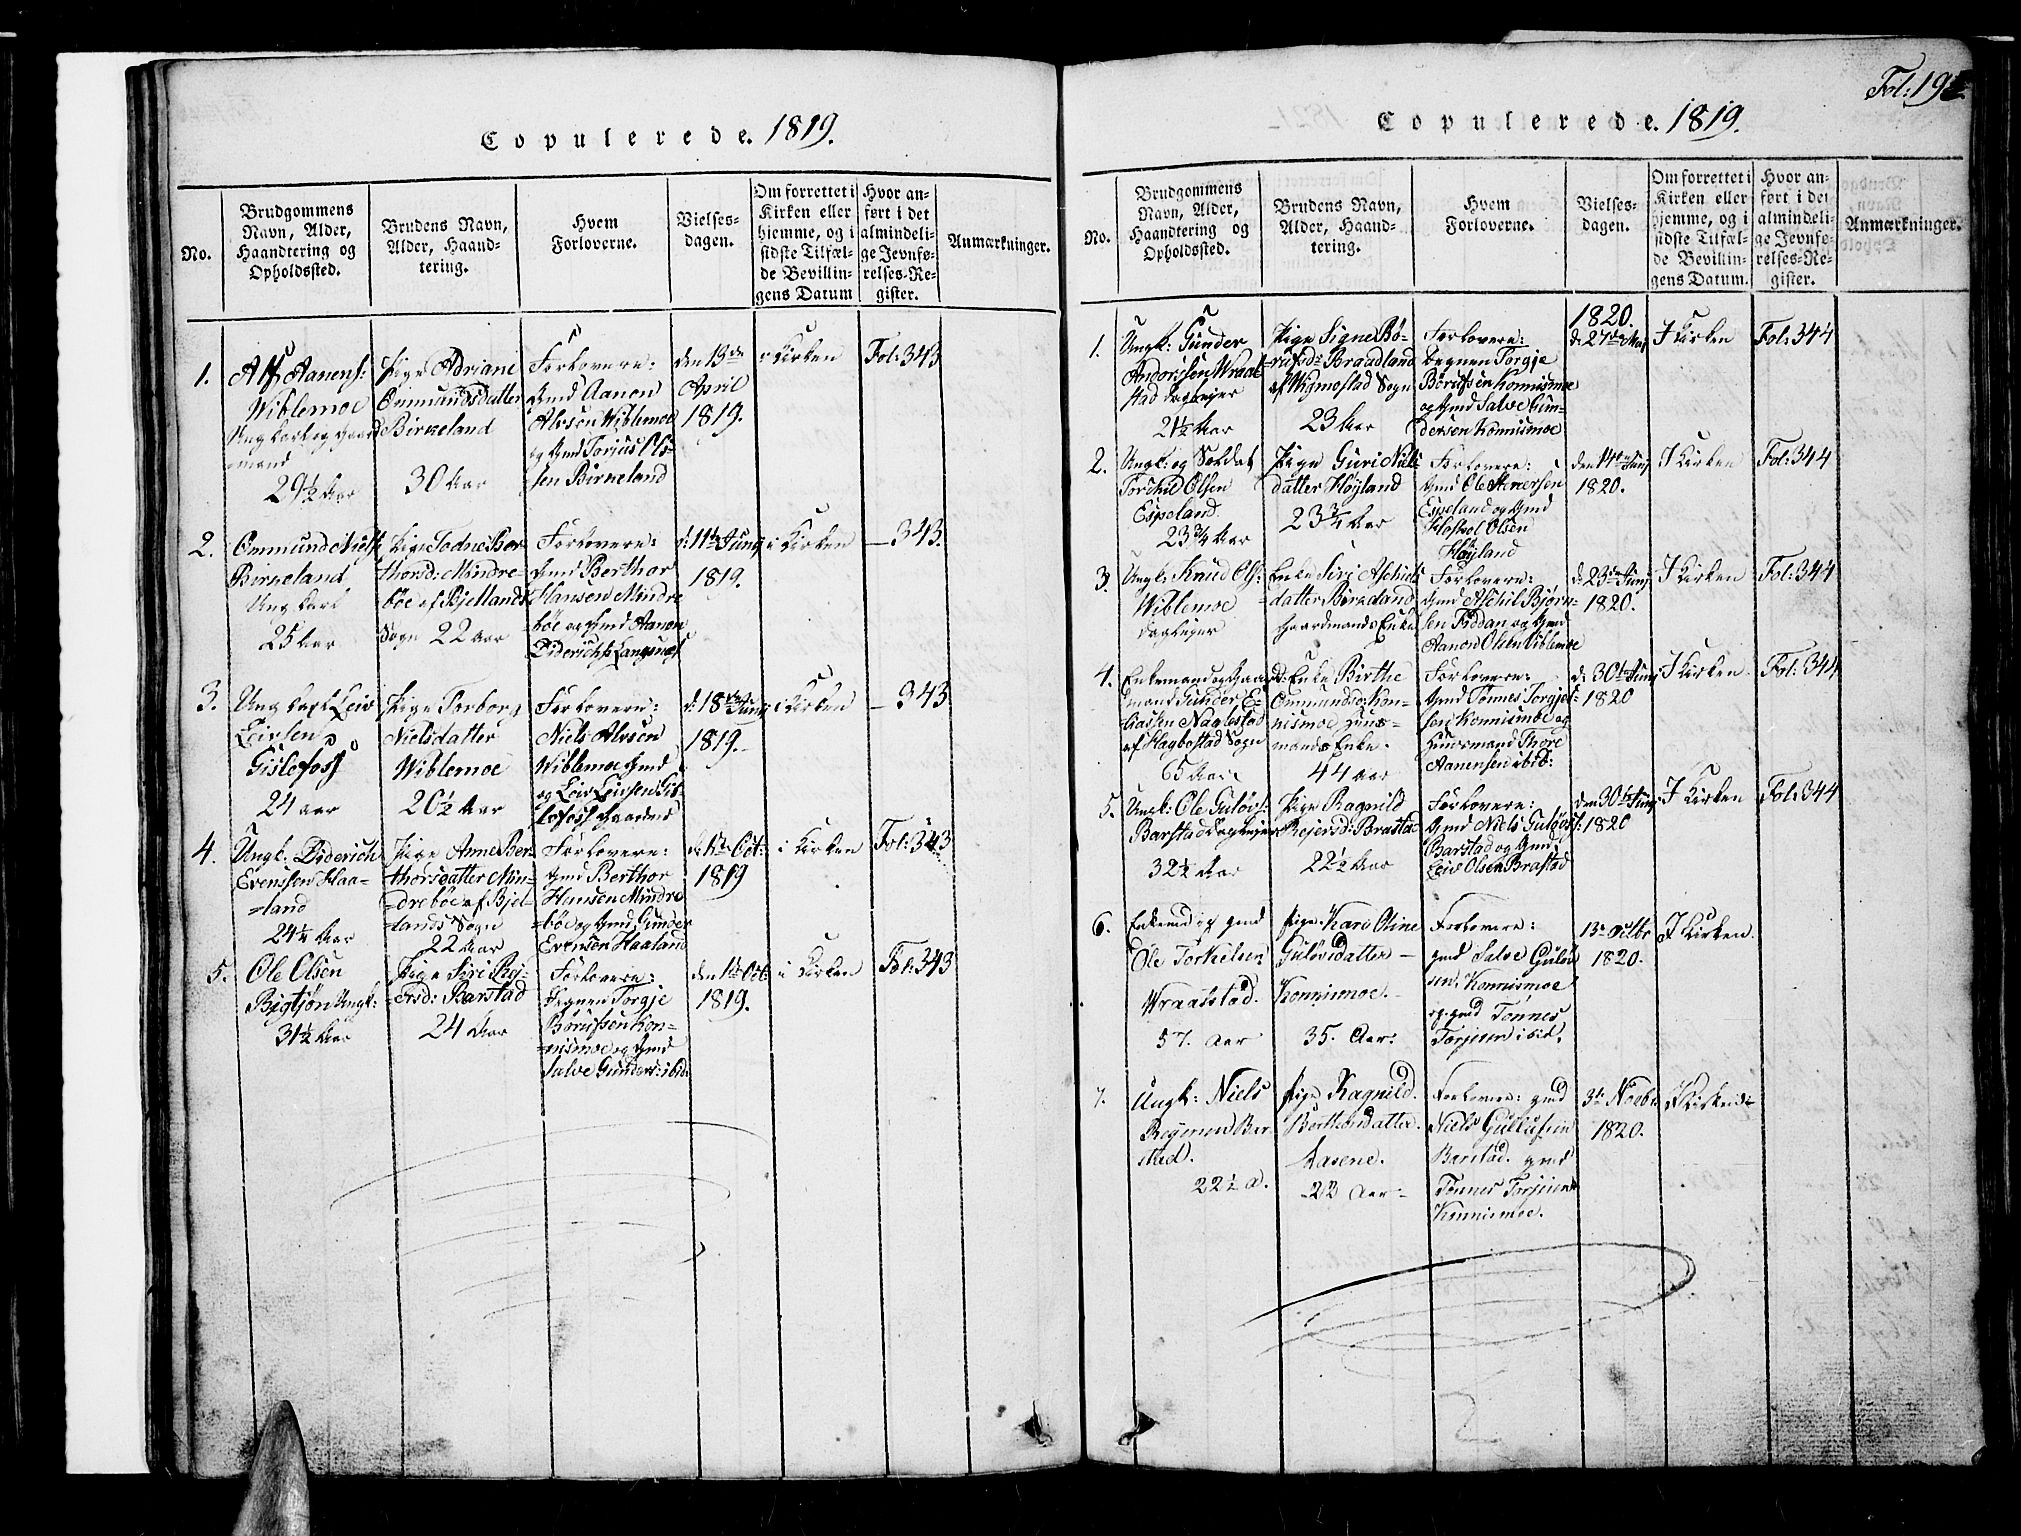 Copulerede. 1819.
No.
Brudgommens
Navn, Alder,
Haandtering og
Opholdssted.
Brudens Navn,
Alder, Haand-
tering.
Hvem
Forloverne.
Vielses-
dagen.
Om forrettet i
Kirken eller
hjemme, og i
sidste Tilfæl-
de Bevillin-
gens Datum
Hvor an-
ført i det
almindeli-
ge Jevnfø-
relses-Re-
gister.
Anmærkninger.
1.
Alf Aanens:
Wiblemoe
Ungkarl og Gaard
mand
29½ Aar
Pige Adriane
Onmundsdatter
Birkeland
30 Aar
Forlovere:
Gmd Aanon
Alvsen Wiblemoe
og Gmd Torjus Ols-
sen Birkeland
den 13de
April
1819.
i Kirken
Fol: 343
2.
Ommund Niels:
Birkeland
Ungkarl
25 Aar
Pige Todne Ber
thorsd: Mindre-
böe af Bjellands
Sogn 22 Aar
Forlovere:
Gmd Berthor
Hansen Mindre
böe og Gmd Aanon
Diderichs: Langnes
d: 11te Junj
1819.
i Kirken
— 343.
3.
Ungkarl Leiv
Leivsen
Gislefoss
24 aar
Pige Torborg
Nielsdatter
Wiblemoe
20½ Aar
Forlovere:
Niels Alvsen
Wiblemoe Gmd
og Leiv Leivsen Gis
lefoss Gaardmd
d: 18de Junj
1819.
i Kirken
— 343
4.
Ungk: Diderich
Evensen Haa-
land
24¼ Aar
Pige Anne Ber
thorsdatter Min-
dreböe af Bjel-
lands Sogn
22 Aar
Forlovere:
Gmd Berthor
Hansen Mindre
böe og Gmd Gunder
Evensen Haaland
de 1te Oct:
1819
i Kirken
Fol: 343
5.
Ole Olsen
Bigtjøn Ungk:
31½ Aar
Pige Siri Rej-
ersd: Barstad
24 Aar
Forlovere:
Torgje
Børufsen Kon-
nismoe og Gmd
Salve Gunders: ibid.
den 1te Oct
1819.
i Kirken
Fol: 343
Fol: 19
Copulerede. 1819.
No.
Brudgommens
Navn, Alder,
Haandtering og
Opholdssted.
Brudens Navn,
Alder, Haand-
tering.
Hvem
Forloverne.
Vielses-
dagen.
Om forrettet i
Kirken eller
hjemme, og i
sidste Tilfæl-
de Bevillin-
gens Datum.
Hvor an-
ført i det
almindeli-
ge Jevnfø-
relses-Re-
gister.
Anmærkninger.
1.
Ungk: Gunder
Andorssen Wraal
stad Dagleyer
21½ Aar
Pige Signe Bö-
rufsd: Braadland
af Wigmostad Sogn
23 Aar
Forlovere:
Torgje
Börufsen Konnismoe
og Gmd Salve Gun-
dersen Konnismoe
1820.
d: 27de Maj
J Kirken
Fol: 344
2.
Ungk: og Soldat
Torkild Olsen
Espeland
23¾ Aar
Pige Guri Niels
datter Höyland
23¾ Aar
Forlovere:
Gmd Ole
Espeland og Gmd
Olsen
Höyland
den 14de Junj
1820.
J Kirken
Fol: 344
3.
Ungk: Knud Ols:
Wiblemoe
Dagleyer
Enke Siri Aschiels
datter Birkeland
Gaardmands Enke
Forlovere:
Gmd Aschil Bjørn-
sen Fiddan og Gmd
Aanon Olsen Viblemoe
d: 23de Junj
1820.
J Kirken
Fol: 344
4.
Enkemand og Gaard
mand Gunder E-
liassen Naglestad
af Hægbostad Sogn
65 Aar
Enke Birthe
Ommundsd: Kon-
nismoe Huus-
mands Enke.
44 aar
Forlovere:
Gmd Tønnes Torgjel-
sen Konnismoe og
Huusmand Thore
Aanensen ibid:
d: 30te Junj
1820
J Kirken
Fol: 344
5.
Ungk: Ole Gulovs:
Barstad Dagleyer
32½ Aar
Pige Ragnild
Rejersd: Brastad
22½ Aar
Forlovere:
Gmd Niels Gulovs:
Barstad og Gmd
Leiv Olsen Brastad
den 30te Junj
1820
J Kirken
Fol: 344
6.
Enkemd og gmd
Ole Torkelsen
Wraalstad.
57. Aar
Pige Karo Oline
Gulovsdatter —
Konnismoe.
35. Aar:
Forlovere:
gmd Salve Gulov
sen. Konnismoe
og gmd Tönnes
Torjesen ibid.
13de Octbr
1820.
J Kirken.
7.
Ungk: Niels
Reyersen Bar
stad.
22½ A.
Pige Ragnild.
Berthesdatter.
Aasene.
22 Aar:
Forlovere: gmd
Niels Gullufsen
Barstad. gmd
Tönnes Torjesen
Konnismoe.
3de Novbr
1820.
J Kirken